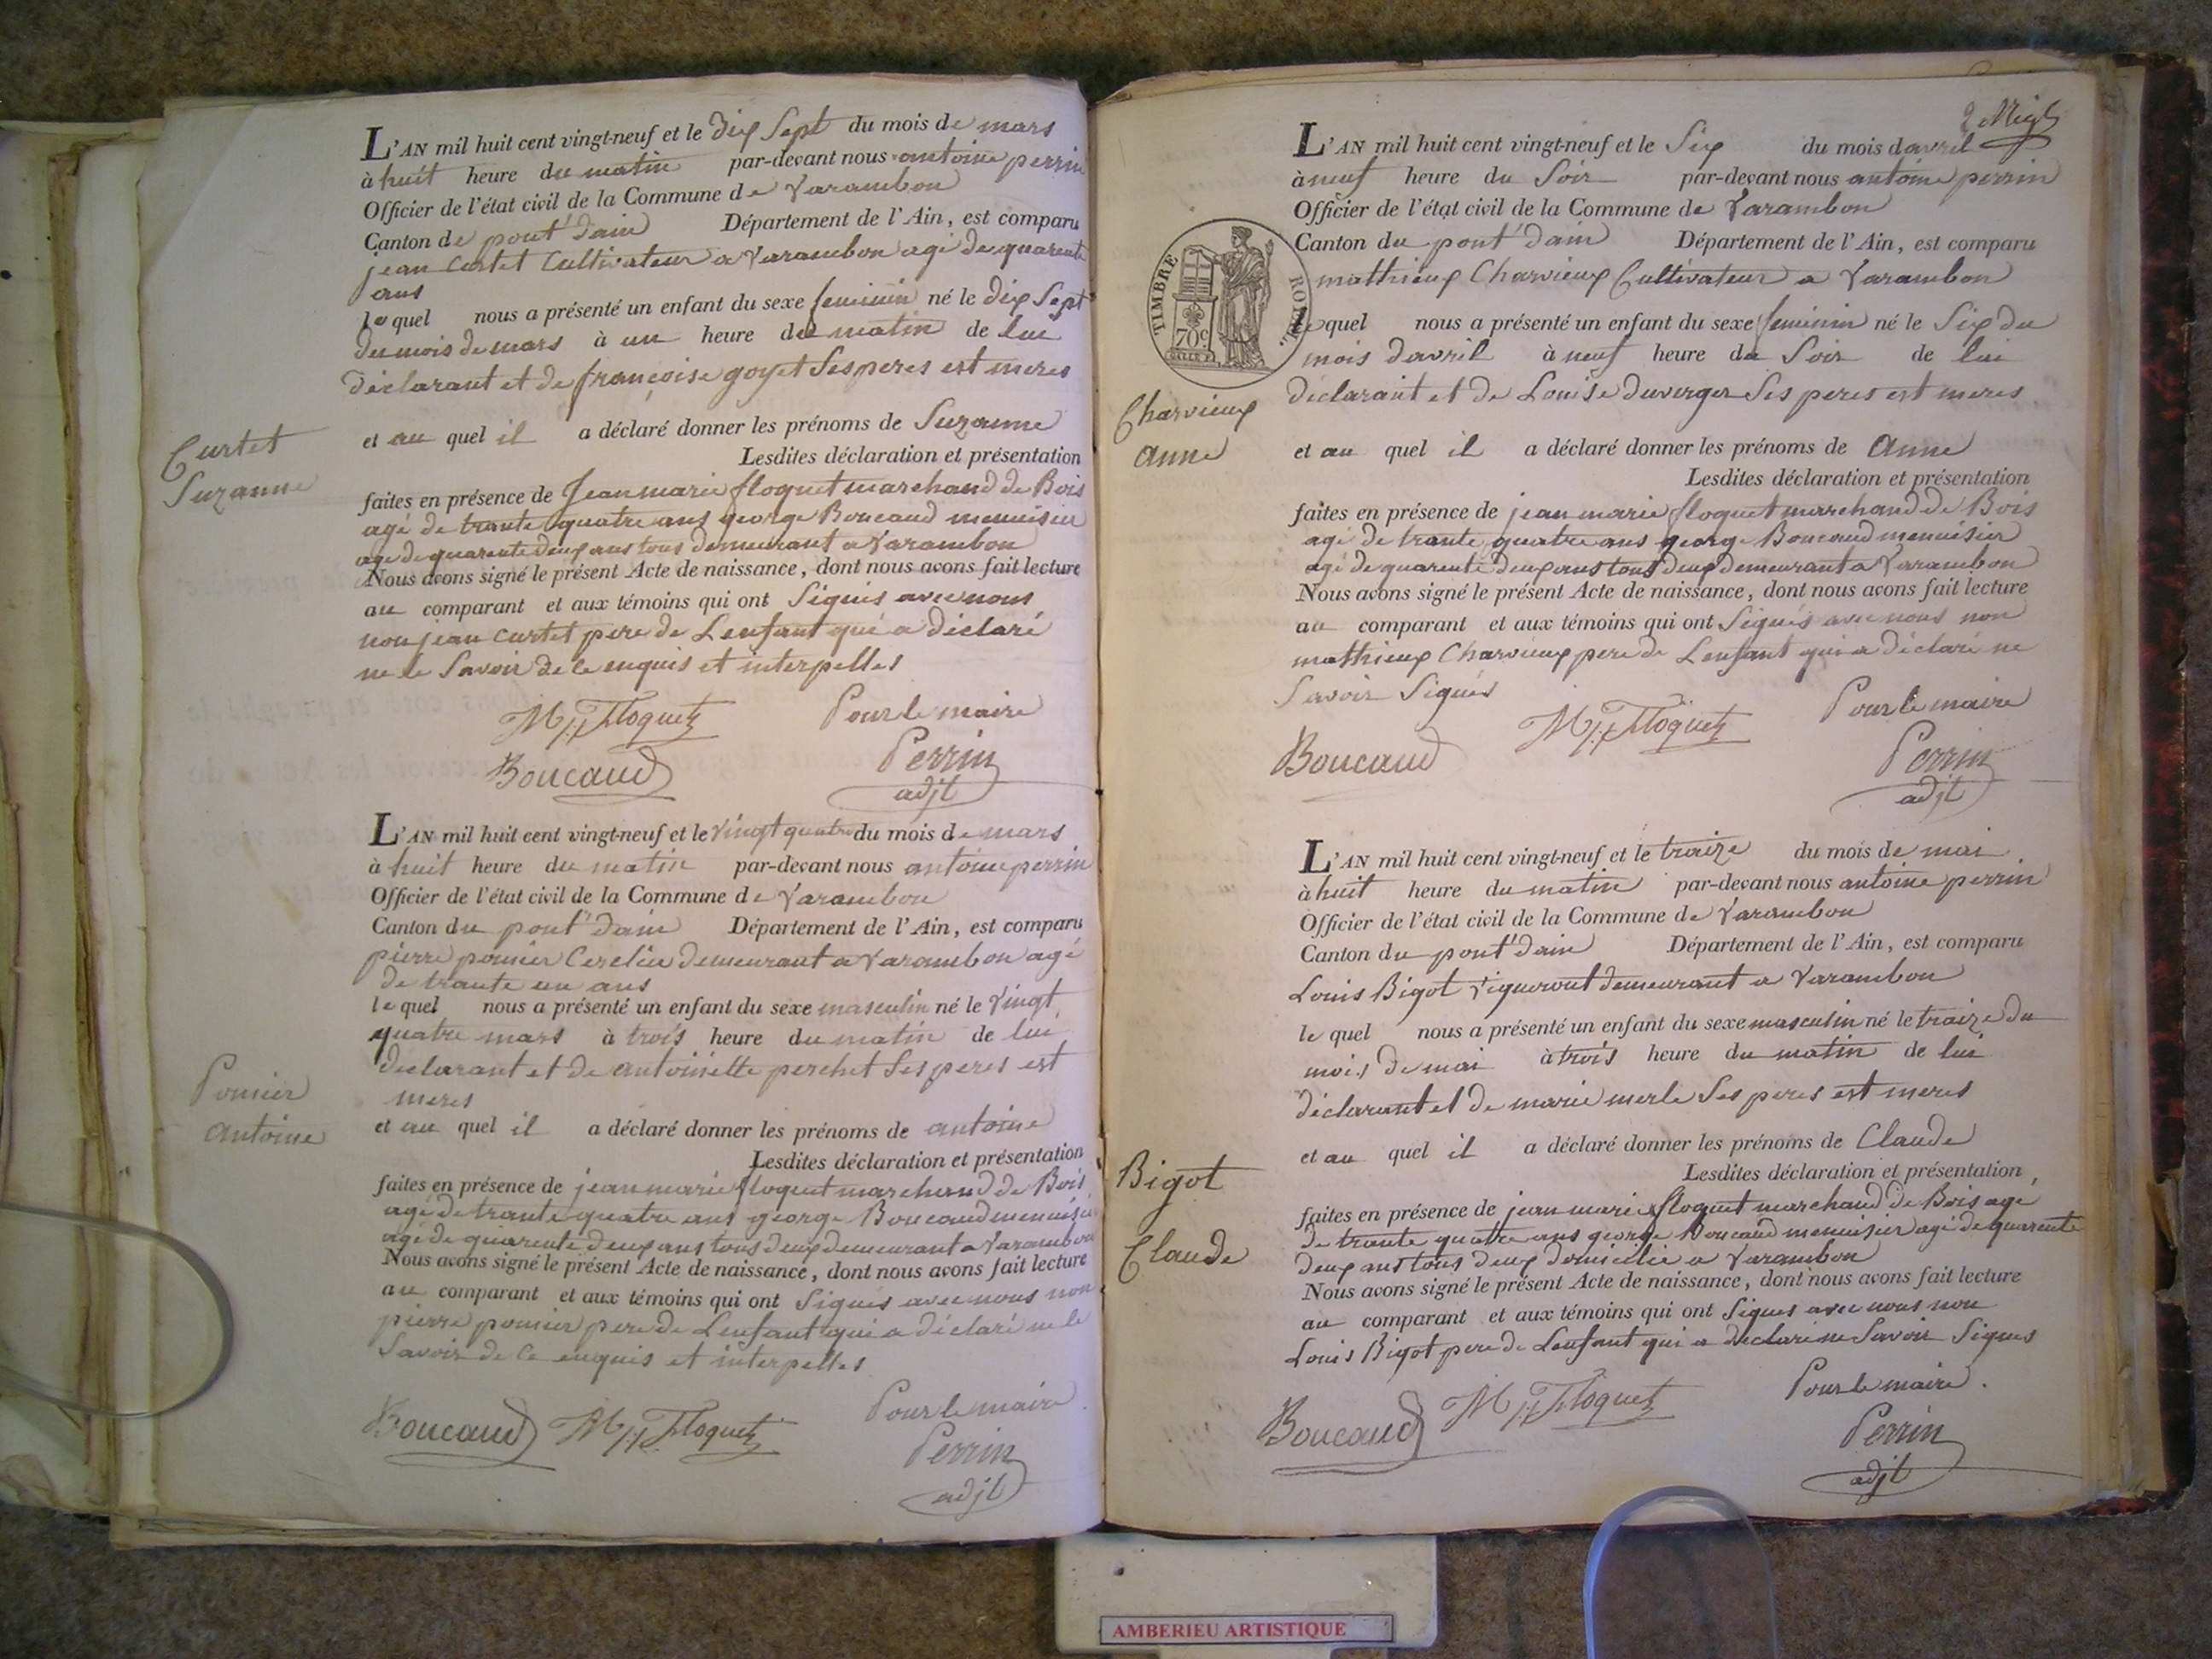 L'AN mil huit cent vingt-neuf et le dix Sept du mois de mars
à huit heure du matin par-devant nous antoine perrin
Officier de l'état civil de la Commune de Varambon
Canton de pont d'ain Département de l'Ain, est comparu
jean Curtet Cultivateur a Varambon agé de quarente
ans
lequel nous a présenté un enfant du sexe feminin né le dix Sept
du mois de mars à un heure du matin de lui
déclarant et de françoise goyet Ses peres est meres
et au quel il a déclaré donner les prénoms de Suzanne
Curtet
Suzanne
Lesdites déclaration et présentation
faites en présence de Jean marie floquet marchand de Bois
agé de trante quatre ans george Boucaud menuisier
agé de quarente deux ans tous demeurant a Varambon
Nous avons signé le présent Acte de naissance, dont nous avons fait lecture
au comparant et aux témoins qui ont Signés avec nous
non jean Curtet pere de Lenfant qui a déclaré
ne le Savoir de ce enquis et interpellés
M J Floquet Pour le maire
Boucaud Perrin
adjt
L'AN mil huit cent vingt-neuf et le vingt quatre du mois de mars
à huit heure du matin par-devant nous antoine perrin
Officier de l'état civil de la Commune de Varambon
Canton du pont d'ain Département de l'Ain, est comparu
pierre pomier demeurant a Varambon agé
de trante un ans
lequel nous a présenté un enfant du sexe masculin né le vingt
quatre mars à trois heure du matin de lui
declarant et de antoinette perchet Ses peres est
meres
Pomier
antoine
et au quel il a déclaré donner les prénoms de antoine
Lesdites déclaration et présentation
faites en présence de jean marie floquet marchand de Bois
agé de trante quatre ans george Boucaud menuisier
agé de quarente deux ans tous deux demeurant a Varambon
Nous avons signé le présent Acte de naissance, dont nous avons fait lecture
au comparant et aux témoins qui ont Signés avec nous non
pierre pomier pere de Lenfant qui a déclaré ne le
Savoir de ce enquis et interpellés
Boucaud M J Floquet Pour le maire
Perrin
adjt
L'AN mil huit cent vingt-neuf et le Six du mois davril
à neuf heure du Soir par-devant nous antoine perrin
Officier de l'état civil de la Commune de Varambon
Canton du pont d'ain Département de l'Ain, est comparu
mathieux Charvieux Cultivateur a Varambon
TIMBRE ROYAL.
70c
lequel nous a présenté un enfant du sexe feminin né le Six du
mois davril à neuf heure du Soir de lui
déclarant et de Louise duverger Ses peres est meres
Charvieux
anne
et au quel il a déclaré donner les prénoms de anne
Lesdites déclaration et présentation
faites en présence de jean marie floquet marchand de Bois
agé de trante quatre ans george Boucaud menuisier
agé de quarente deux ans tous deux demeurant a Varambon
Nous avons signé le présent Acte de naissance, dont nous avons fait lecture
au comparant et aux témoins qui ont Signés avec nous non
mathieux Charvieux pere de Lenfant qui a déclaré ne
Savoir Signés
M J Floquet Pour le maire
Boucaud Perrin
adjt
L'AN mil huit cent vingt-neuf et le traize du mois de mai
à huit heure du matin par-devant nous antoine perrin
Officier de l'état civil de la Commune de Varambon
Canton du pont d'ain Département de l'Ain, est comparu
Louis Bigot Vigneront demeurant a Varambon
le quel nous a présenté un enfant du sexe masculin né le traize du
mois de mai à trois heure du matin de lui
déclarant et de marie merle Ses peres est meres
et au quel il a déclaré donner les prénoms de Claude
Bigot
Claude
Lesdites déclaration et présentation
faites en présence de jean marie floquet marchand de Bois agé
de trante quatre ans george Boucaud menuisier agé de quarente
deux ans tous deux domicilie a Varambon
Nous avons signé le présent Acte de naissance, dont nous avons fait lecture
au comparant et aux témoins qui ont Signés avec nous non
Louis Bigot pere de Lenfant qui a declaré ne Savoir Signes
Boucaud M J Floquet Pour le maire.
Perrin
adjt
AMBERIEU ARTISTIQUE